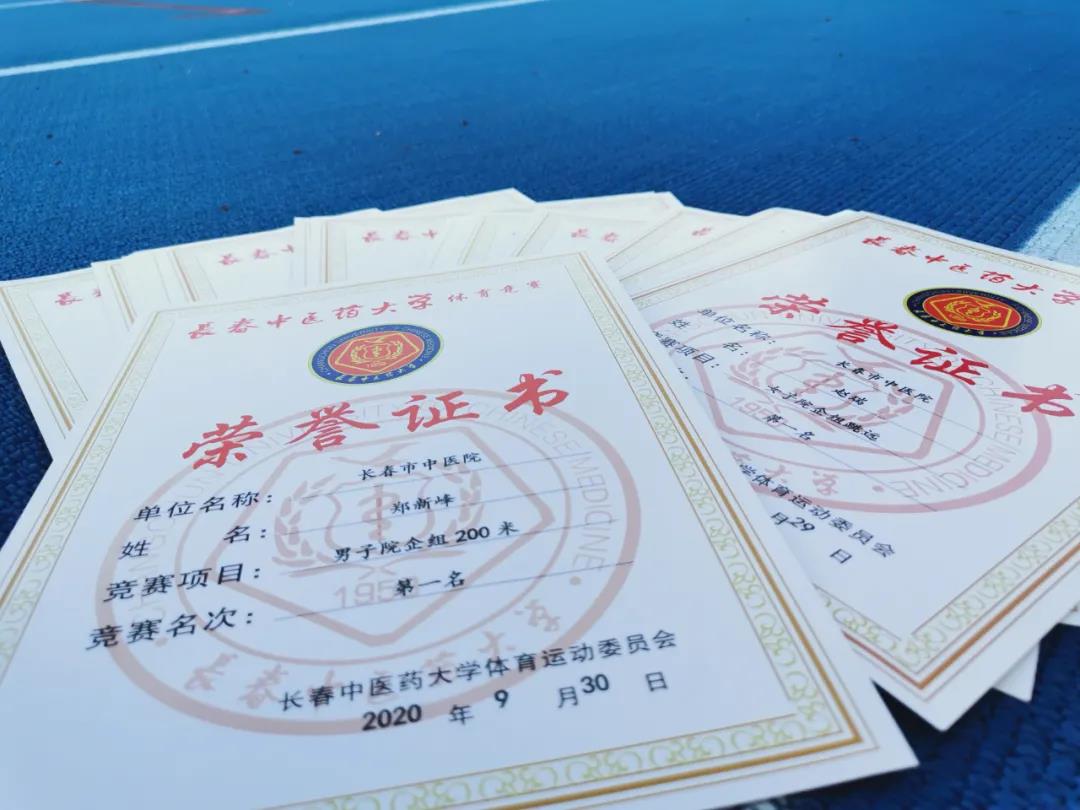 长春中医药大学体育竞赛
荣誉证书
单位名称：长春市中医院
姓名：郑新峰
竞赛项目：男子院企组200米
竞赛名次：第一名
长春中医药大学体育运动委员会
2020年9月30日
长春中医药大学
荣誉证书
单位名称：长春市中医院
姓名：赵瑞
竞赛项目：女子院企组跳远
第一名
学体育运动委员会
月29日
长春中
长春中